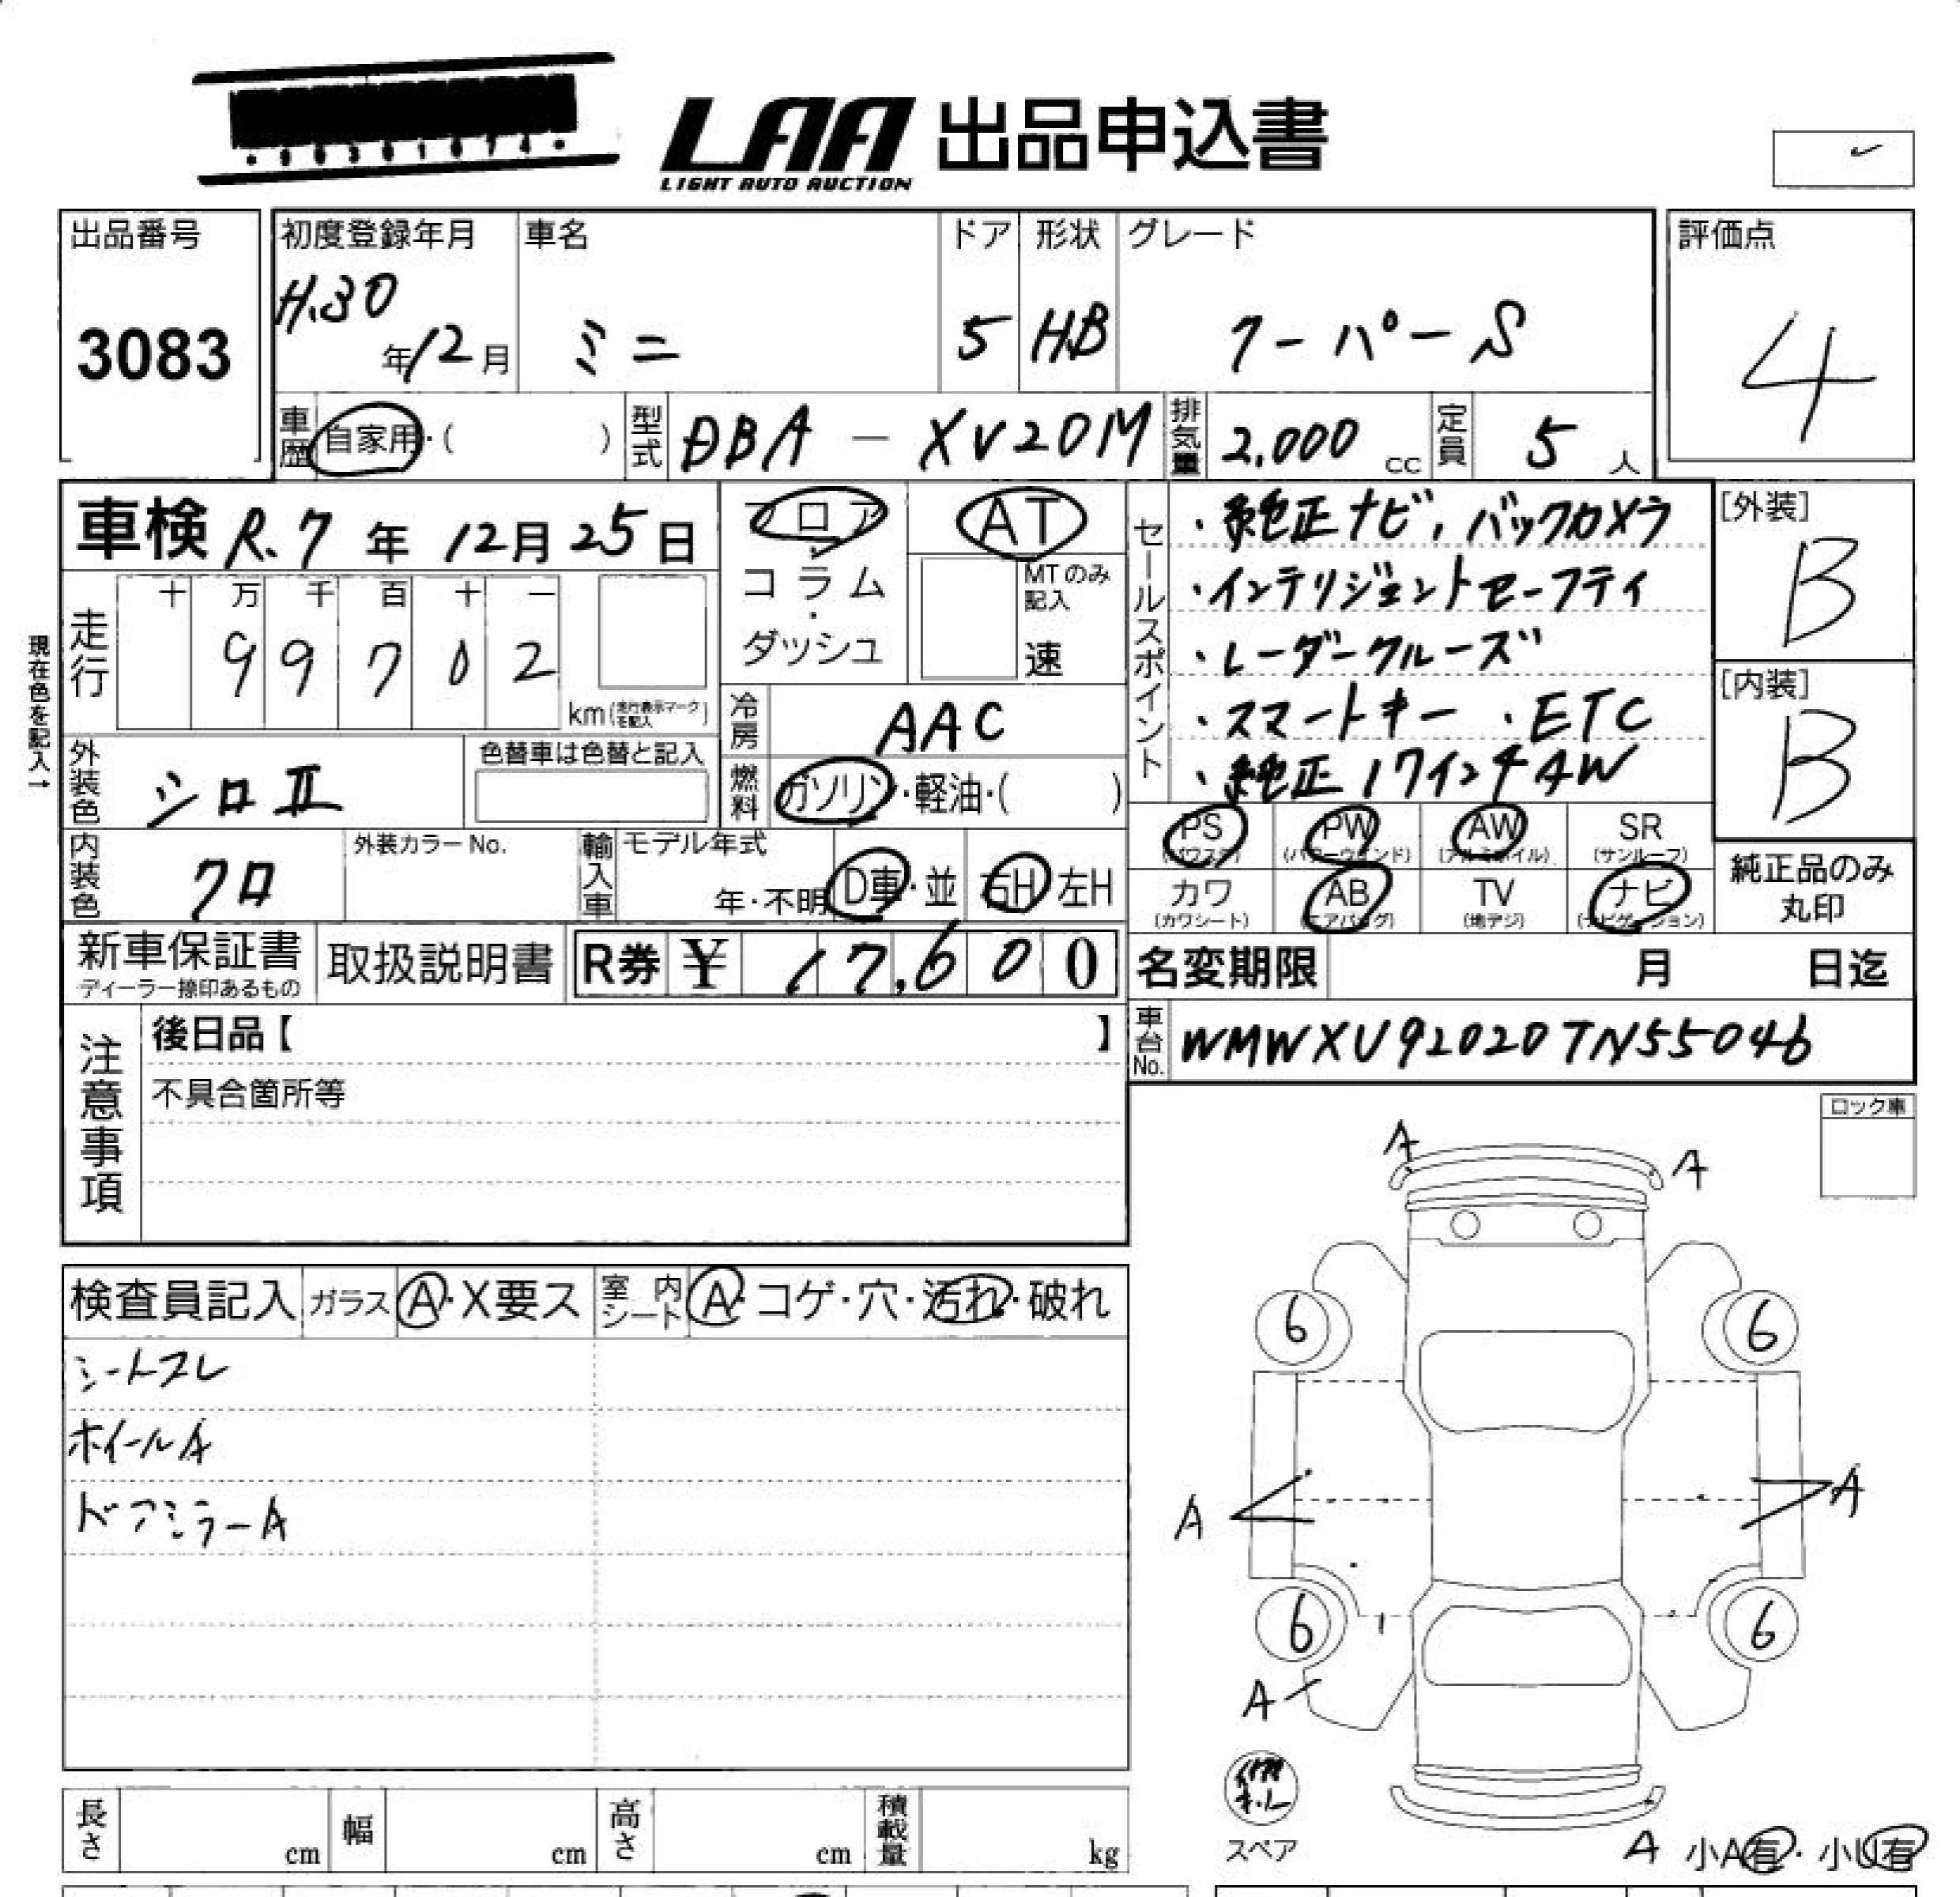 LAA 出品申込書
LIGHT AUTO AUCTION
出品番号
3083
初度登録年月
H.30
年12月
車名
ミニ
ドア
5
形状
HB
グレード
クーパーS
評価点
4
車歴 自家用・( )
型式 DBA - XV20M
排気量 2,000 cc
定員 5 人
車検 R.7 年 12月 25日
フロア
コラム
・
ダッシュ
AT
MTのみ
記入
速
セールスポイント
・純正ナビ, バックカメラ
・インテリジェントセーフティ
・レーダークルーズ
・スマートキー ・ETC
・純正17インチAW
[外装]
B
[内装]
B
現在色を記入→
走行
十 万 千 百 十 一
9 9 7 0 2
km(走行表示マークを記入)
冷房 AAC
燃料 ガソリン・軽油・( )
外装色 シロⅡ
色替車は色替と記入
内装色 クロ
外装カラーNo.
輸入車
モデル年式
年・不明
D車・並
右H 左H
PS
(パワステ)
PW
(パワーウインド)
AW
(アルミホイル)
SR
(サンルーフ)
カワ
(カワシート)
AB
(エアバッグ)
TV
(地デジ)
ナビ
(ナビゲーション)
純正品のみ
丸印
新車保証書
ディーラー捺印あるもの
取扱説明書
R券 ¥ 17,600
名変期限 月 日迄
車台No. WMWXU92020TN55046
注意事項
後日品【 】
不具合箇所等
ロック車
検査員記入 ガラス A・X要ス 室内シート A・コゲ・穴・汚れ・破れ
シートスレ
ホイールA
ドアミラーA
A
A
6
6
A
A
6
6
A
スペア
A 小A有・小U有
長さ cm
幅 cm
高さ cm
積載量 kg